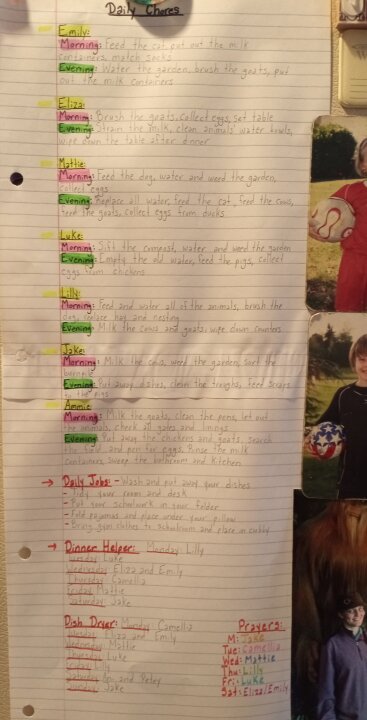 Daily Chores
Emily:
Morning: Feed the cat, put out the milk
containers, match socks
Evening: Water the garden, brush the goats, put
out the milk containers
Eliza:
Morning: Brush the goats, collect eggs, set table
Evening: Strain the milk, clean animals' water bowls,
wipe down the table after dinner
Mattie:
Morning: Feed the dog, water and weed the garden,
collect eggs
Evening: Replace all water, feed the cat, feed the cows,
feed the goats, collect eggs from ducks
Luke:
Morning: Sift the compost, water and weed the garden
Evening: Empty the old water, feed the pigs, collect
eggs from chickens
Lilly:
Morning: Feed and water all of the animals, brush the
dog, replace hay and nesting
Evening: Milk the cows and goats, wipe down counters
Jake:
Morning: Milk the cows, weed the garden, sort the
Evening: Put away dishes, clean the troughs, feed scraps
to the pigs
Ammie:
Morning: Milk the goats, clean the pens, let out
the animals, check all gates and
Evening: Put away the chickens and goats, search
the and pen for eggs. Rinse the milk
containers, sweep the bathroom and kitchen
→ Daily Jobs: - Wash and put away your dishes
- Tidy your room and desk
- Put your schoolwork in your folder
- Fold pajamas and place under your pillow
- Bring gym clothes to schoolroom and place in cubby
→ Dinner Helper: Monday: Lilly
Tuesday: Luke
Wednesday: Eliza and Emily
Thursday: Camellia
Friday: Mattie
Saturday: Jake
Dish Dryer: Monday: Camellia
Tuesday: Eliza and Emily
Wednesday: Mattie
Thursday: Luke
Friday: Lilly
Saturday: and
Sunday: Jake
Prayers:
M: Jake
Tue: Camellia
Wed: Mattie
Thu: Lilly
Fri: Luke
Sat: Eliza/Emily